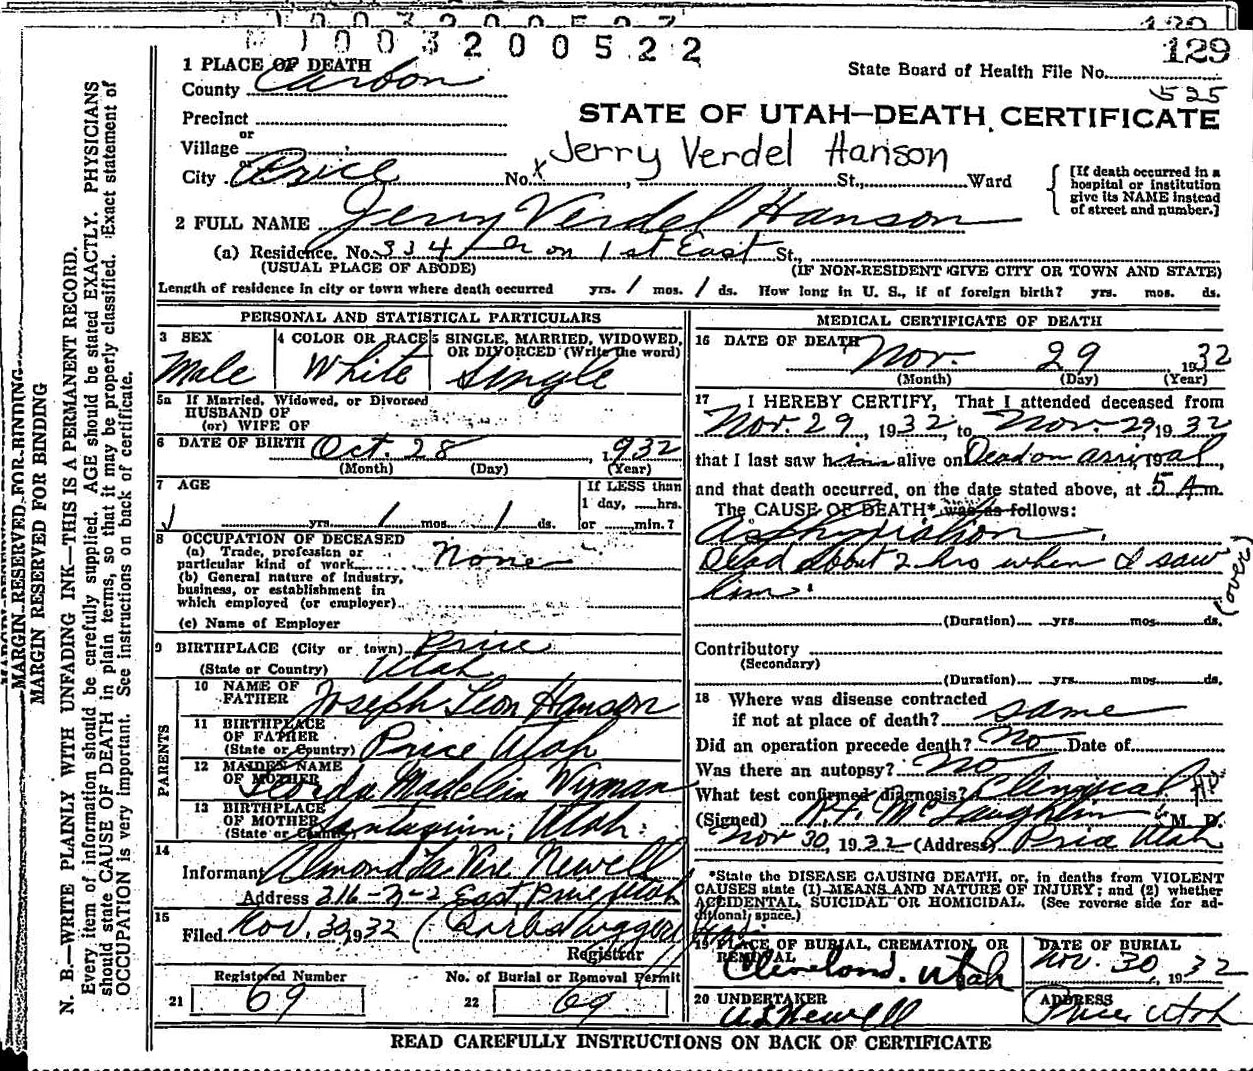 1003200522
129
1 PLACE OF DEATH
County Carbon
State Board of Health File No.
525
Precinct
or
Village
or
City Price
STATE OF UTAH—DEATH CERTIFICATE
x Jerry Verdel Hanson
No. , St., Ward
[If death occurred in a hospital or institution give its NAME instead of street and number.]
2 FULL NAME Jerry Verdel Hanson
(a) Residence. No. 334 on 1st East St.,
(USUAL PLACE OF ABODE) (IF NON-RESIDENT GIVE CITY OR TOWN AND STATE)
Length of residence in city or town where death occurred yrs. 1 mos. 1 ds. How long in U. S., if of foreign birth? yrs. mos. ds.
PERSONAL AND STATISTICAL PARTICULARS
3 SEX
Male
4 COLOR OR RACE
White
5 SINGLE, MARRIED, WIDOWED, OR DIVORCED (Write the word)
Single
5a If Married, Widowed, or Divorced
HUSBAND OF
(or) WIFE OF
6 DATE OF BIRTH Oct. 28, 1932
(Month) (Day) (Year)
7 AGE
yrs. 1 mos. 1 ds.
If LESS than
1 day, hrs.
or min.?
8 OCCUPATION OF DECEASED
(a) Trade, profession or
particular kind of work None
(b) General nature of Industry,
business, or establishment in
which employed (or employer)
(c) Name of Employer
9 BIRTHPLACE (City or town) Price
(State or Country) Utah
PARENTS
10 NAME OF FATHER Joseph Leon Hanson
11 BIRTHPLACE OF FATHER
(State or Country) Price Utah
12 MAIDEN NAME OF MOTHER Madelein Wyman
13 BIRTHPLACE OF MOTHER
(State or Country) Santaquin, Utah
14
Informant Almond La Vere Newell
Address 216-N-2 East, Price, Utah
15
Filed Nov. 30, 1932
Registrar
Registered Number
21 69
No. of Burial or Removal Permit
22 69
MEDICAL CERTIFICATE OF DEATH
16 DATE OF DEATH Nov. 29 1932
(Month) (Day) (Year)
17 I HEREBY CERTIFY, That I attended deceased from
Nov. 29, 1932, to Nov. 29, 1932
that I last saw him alive on Dead on arrival, 19
and that death occurred, on the date stated above, at 5 A.m.
The CAUSE OF DEATH* was as follows:
Asphyxiation.
Dead about 2 hrs when I saw
him.
(over)
(Duration) yrs. mos. ds.
Contributory
(Secondary)
(Duration) yrs. mos. ds.
18 Where was disease contracted
if not at place of death? same
Did an operation precede death? No Date of
Was there an autopsy? No
What test confirmed diagnosis? Clinical
(Signed) McLaughlin M. D.
Nov 30, 1932 (Address) Price Utah
*State the DISEASE CAUSING DEATH, or, in deaths from VIOLENT
CAUSES state (1) MEANS AND NATURE OF INJURY; and (2) whether
ACCIDENTAL, SUICIDAL OR HOMICIDAL. (See reverse side for ad-
ditional space.)
19 PLACE OF BURIAL, CREMATION, OR REMOVAL
Cleveland, Utah
DATE OF BURIAL
Nov. 30, 1932
20 UNDERTAKER
Newell
ADDRESS
Price, Utah
READ CAREFULLY INSTRUCTIONS ON BACK OF CERTIFICATE
MARGIN RESERVED FOR BINDING
MARGIN RESERVED FOR BINDING
N. B.—WRITE PLAINLY WITH UNFADING INK—THIS IS A PERMANENT RECORD.
Every item of information should be carefully supplied. AGE should be stated EXACTLY. PHYSICIANS
should state CAUSE OF DEATH in plain terms, so that it may be properly classified. Exact statement of
OCCUPATION is very important. See instructions on back of certificate.